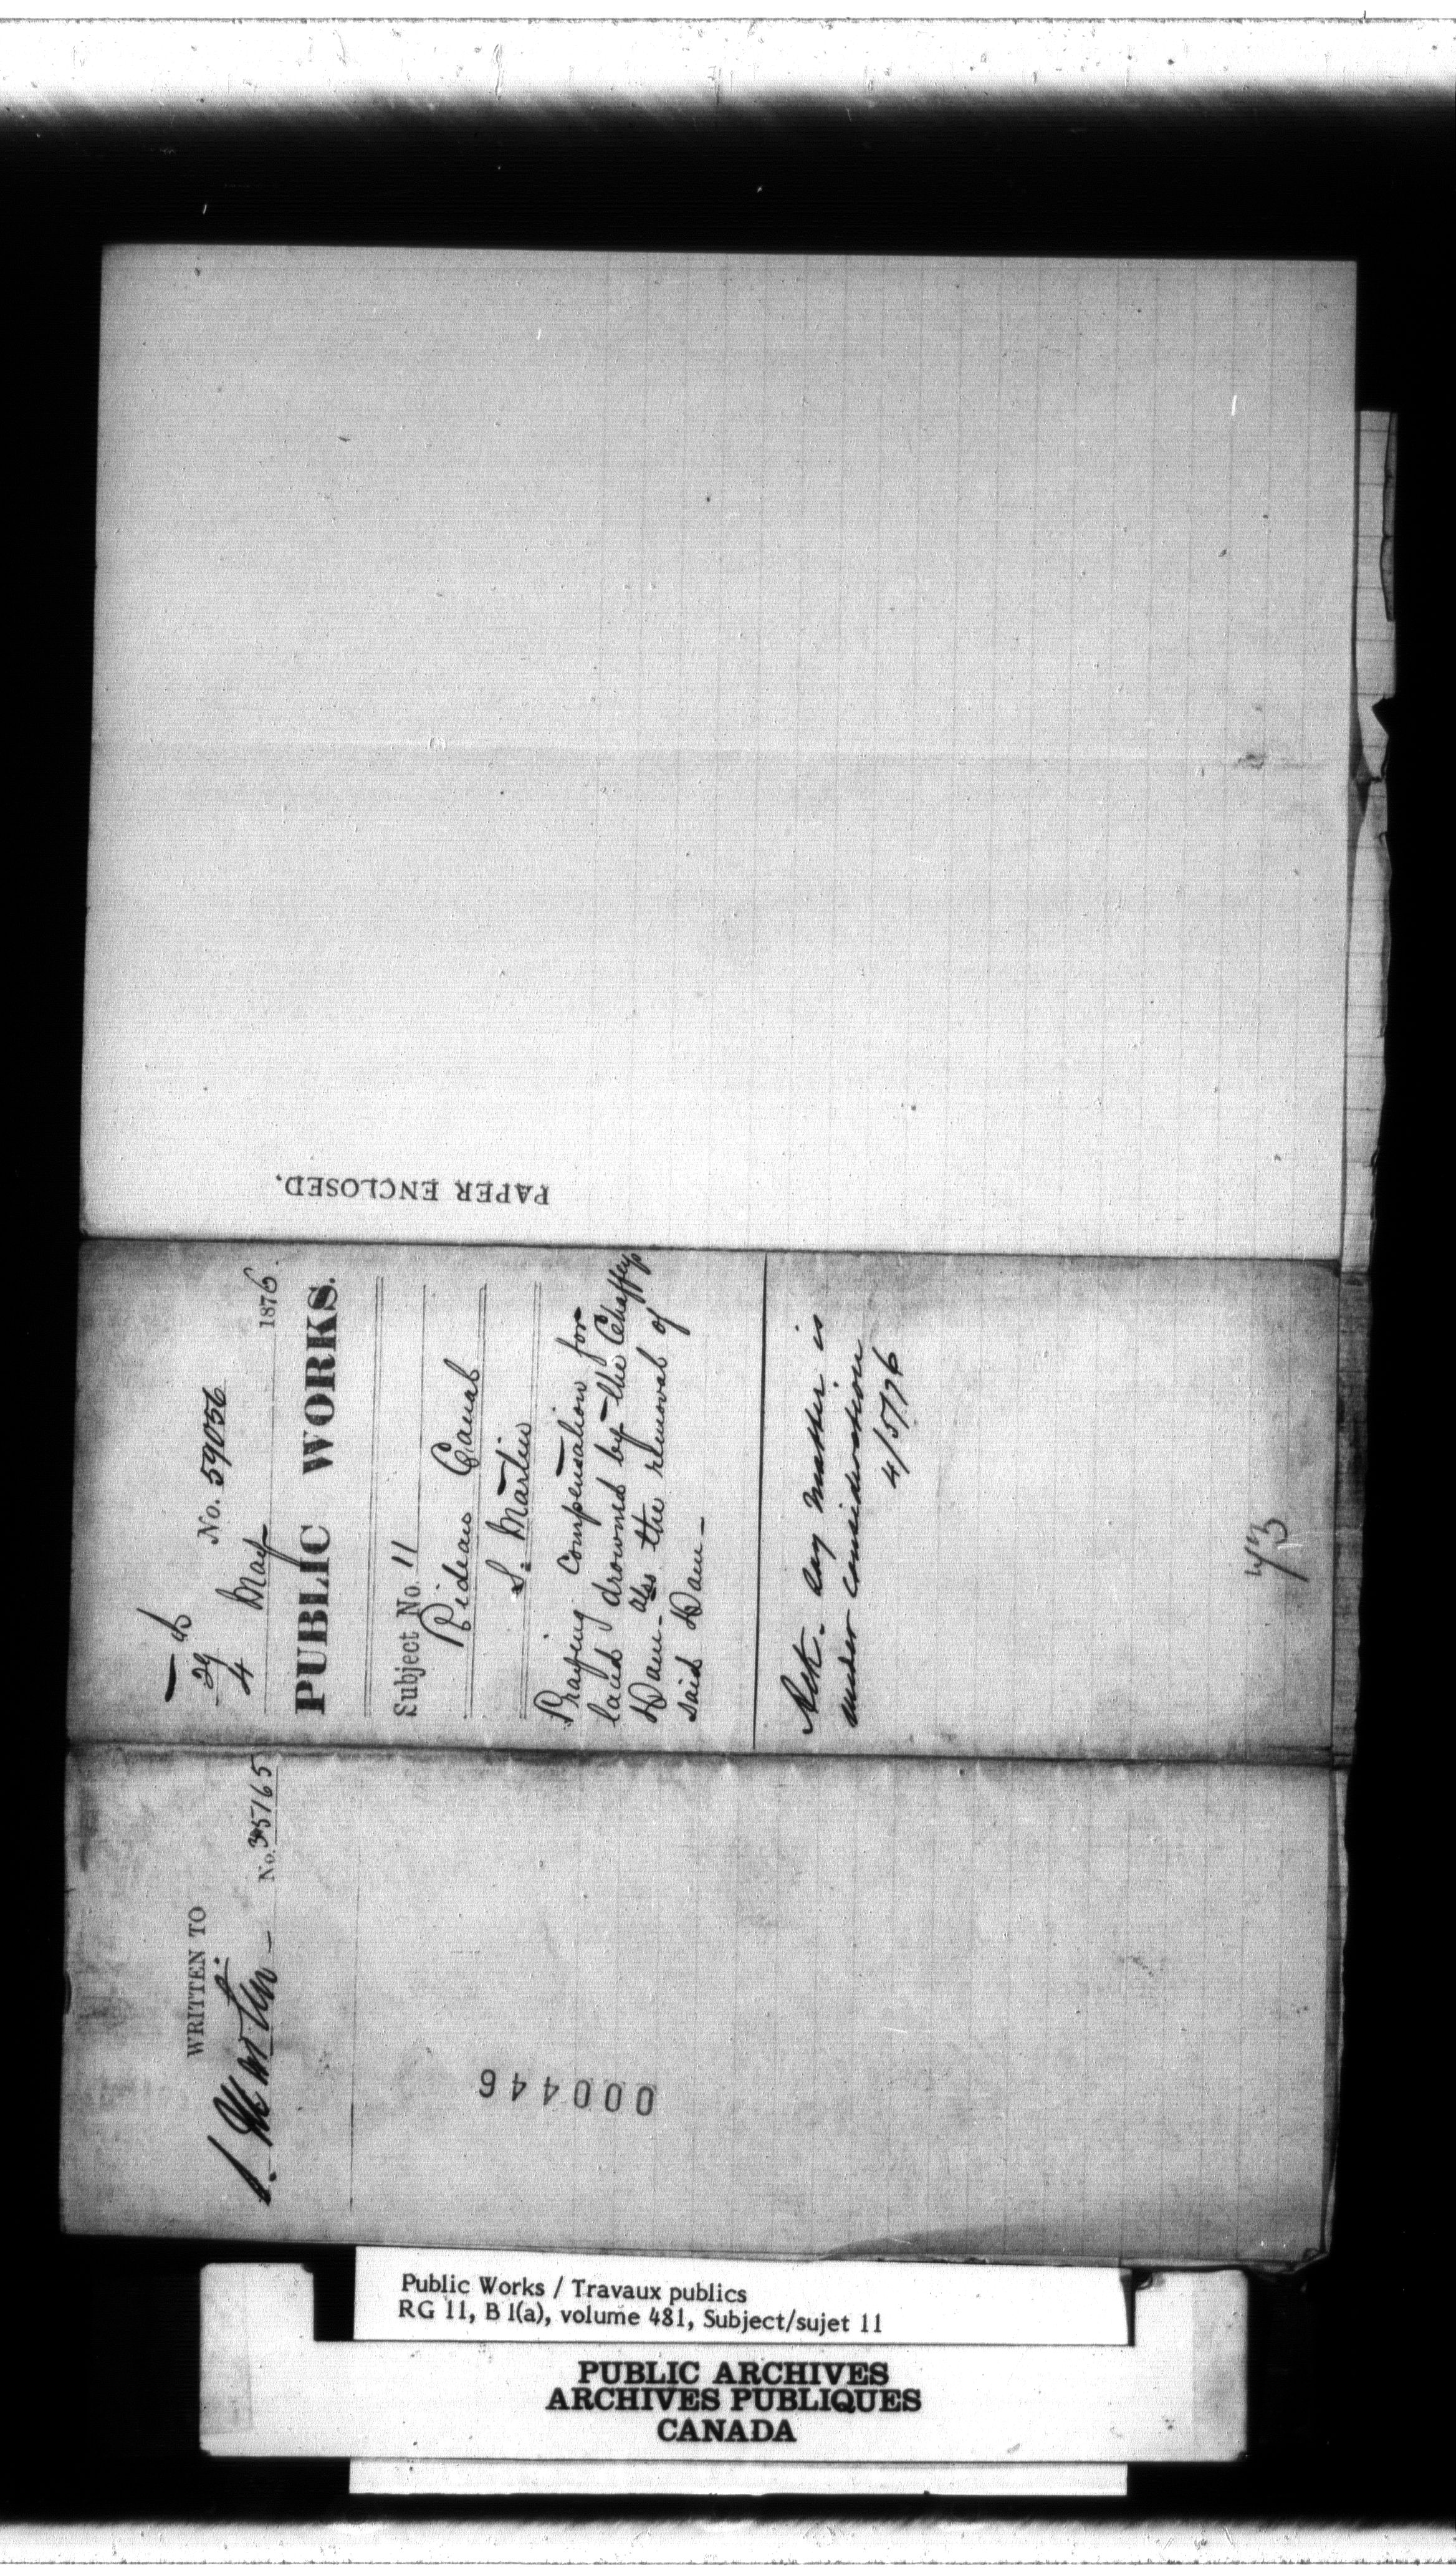 PAPER ENCLOSED.
29
No. 59056
4 May 1876.
PUBLIC WORKS.
Subject No. 11
Rideau Canal
S. Martin
Praying compensation for
land drowned by the Chaffeys
Dam - also the removal of
said Dam -
Ack. say matter is
under consideration
4/5/76
WRITTEN TO
S. Martin -
No. 35165
000446
Public Works / Travaux publics
RG 11, B 1(a), volume 481, Subject/sujet 11
PUBLIC ARCHIVES
ARCHIVES PUBLIQUES
CANADA